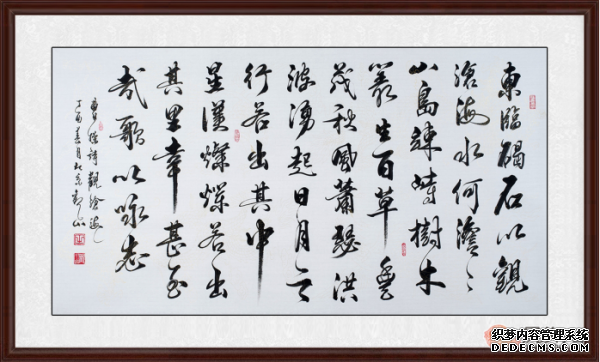 東臨碣石以觀
滄海水何澹〻
山島竦峙樹木
叢生百草豐
茂秋風蕭瑟洪
波湧起日月之
行若出其中
星漢燦爛若出
其里幸甚至
哉歌以咏志
曹操詩觀滄海
丁酉春月於京
织梦内容管理系统
DEDECMS.COM